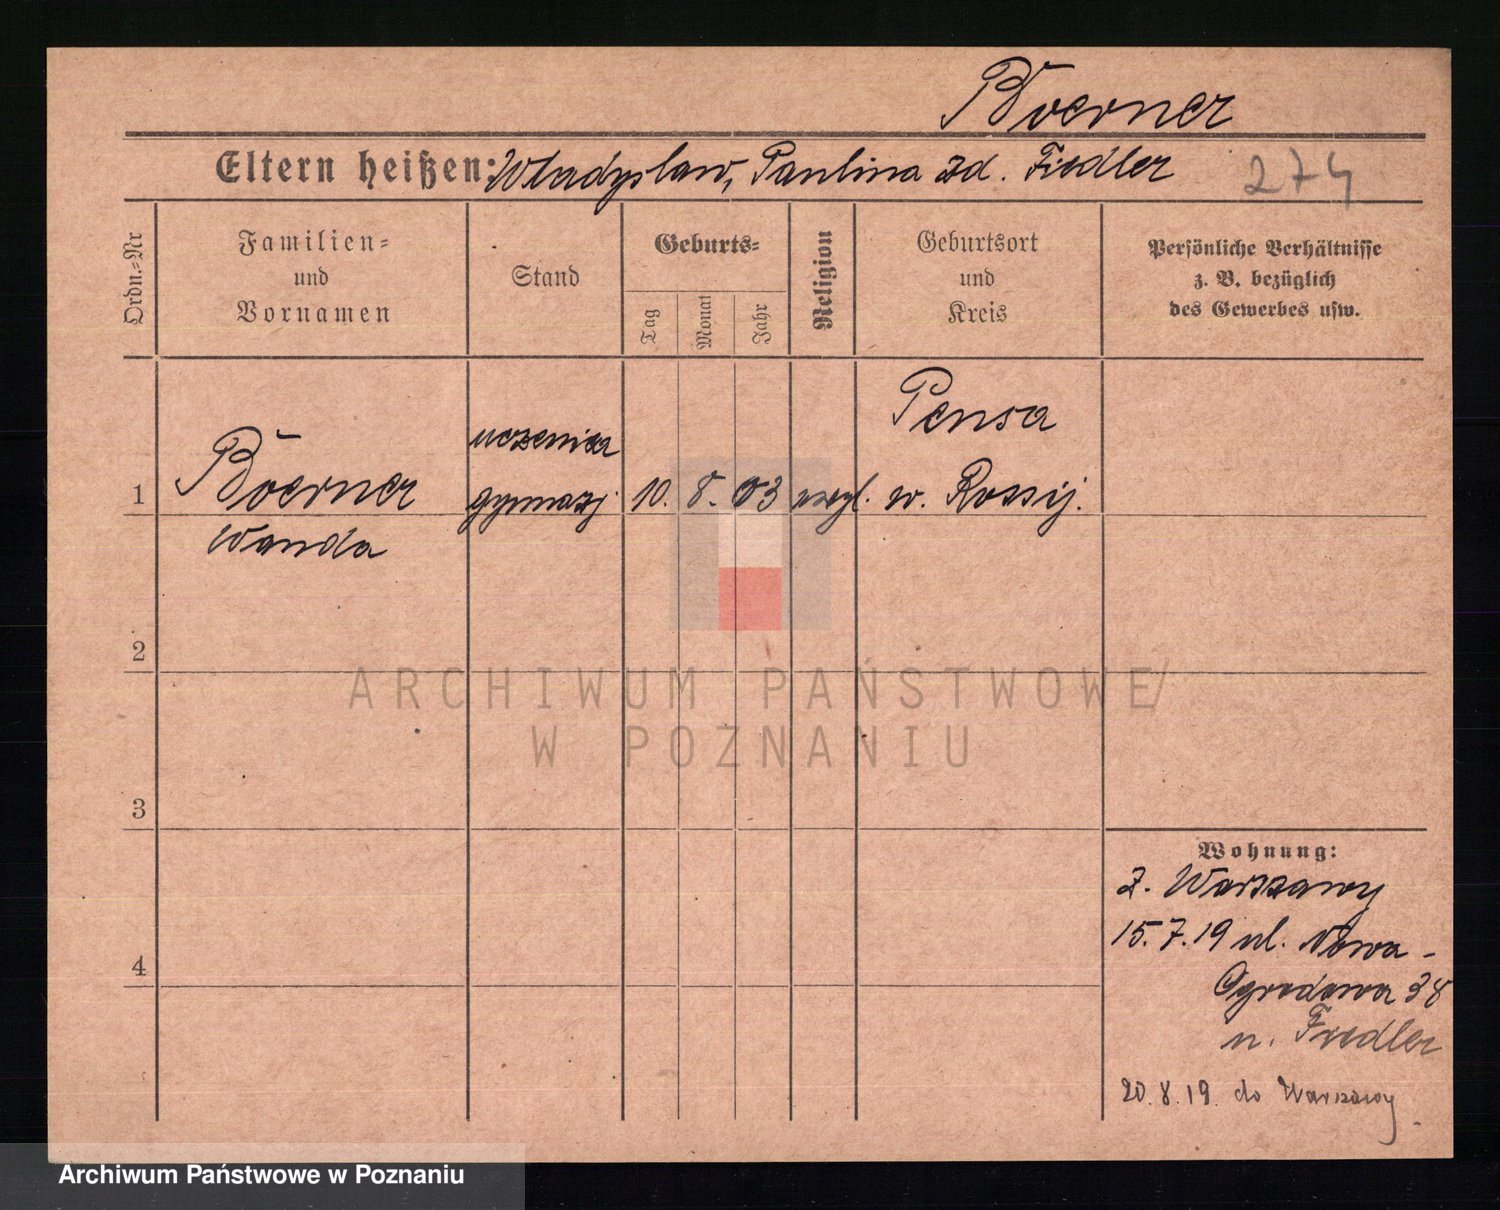 Boerner
Eltern heißen: Władysław, Paulina zd. Fiedler 274
Ordn.-Nr
Familien-
und
Vornamen
Stand
Geburts-
Tag
Monat
Jahr
Religion
Geburtsort
und
Kreis
Persönliche Verhältnisse
z. B. bezüglich
des Gewerbes usw.
1 Boerner
Wanda
uczenica
gymnazj.
10. 8. 03 ewgl.
Pensa
w. Rossij.
2
3
4
Wohnung:
Z. Warszawy
15.7.19 ul. Nowa-
Ogrodowa 38
u. Fiedler
20.8.19. do Warszawy
ARCHIWUM PAŃSTWOWE
W POZNANIU
Archiwum Państwowe w Poznaniu